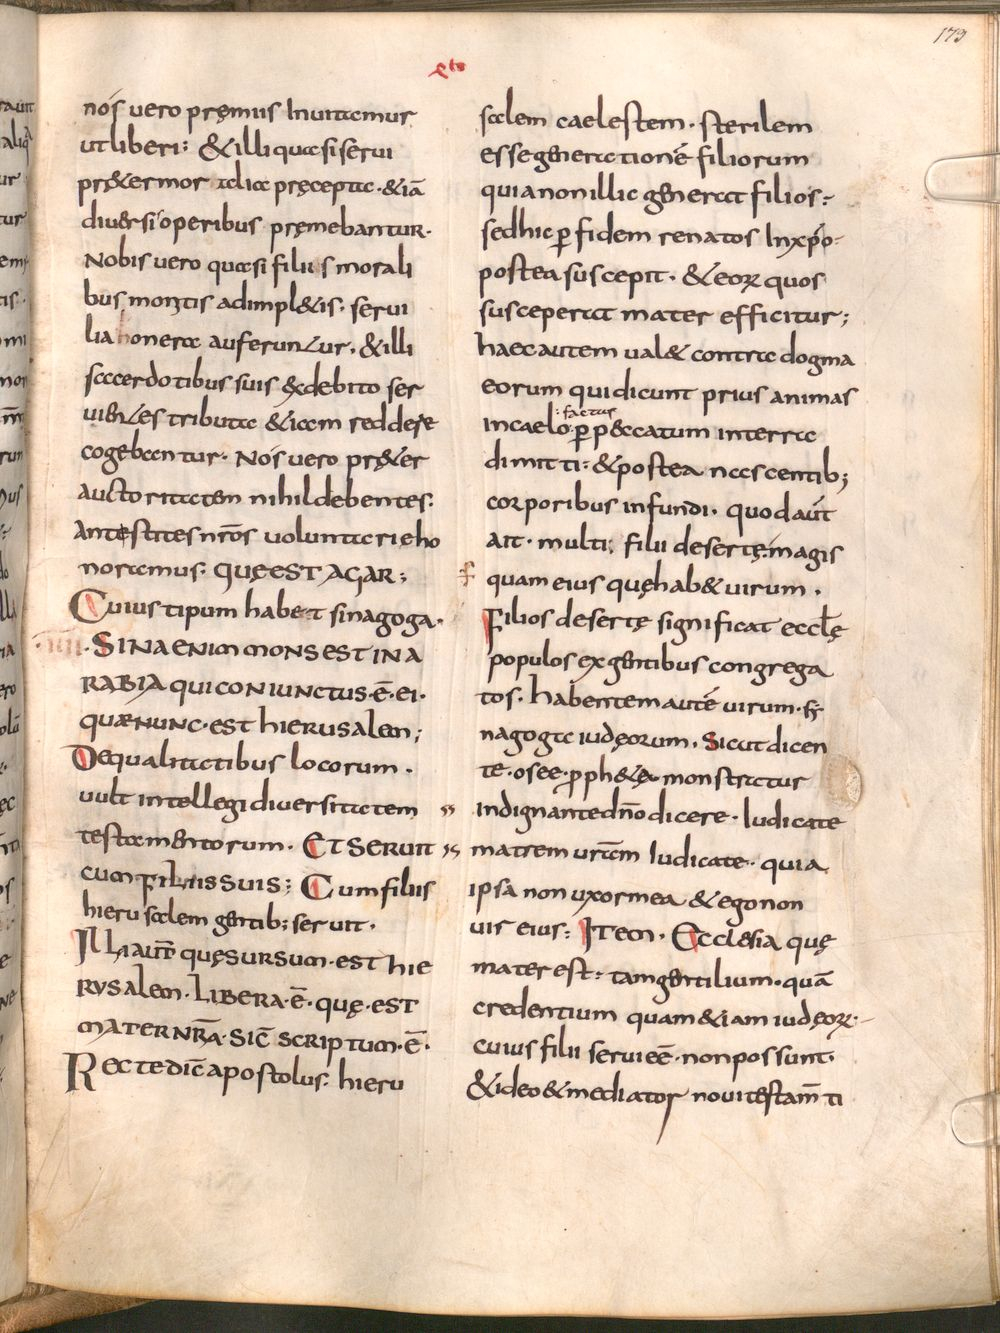 173
xto
nós uero pręmiis Inuitemur
ut liberi; & illi quasi serui
pr&er mortalia pręcepta · & iā
diuersi operibus pręmebantur·
Nobis uero quasi filiis morali
bus mon&is adimpl&is · serui
lia honera auferuntur · & illi
sacerdotibus suis & debito ser
uientes tributa & iam reddere
cogebantur · Nós uero pr&er
auctoritatem nihil debentes·
Antestites nr̄os uoluntarie ho
noremus · QUĘ EST AGAR;
Cuius tipum habet sinagoga·
IIII · SINA ENIM MONS EST IN A
RABIA QUI CONIUNCTUS · Ē · EI ·
QUÆ NUNC · EST HIERUSALEM;
De qualitatibus locorum ·
uult intellegi diuersitatem
testamentorum · ET SERUIT
CUM FILIIS SUIS; Cum filiis
hierusalem gentib; seruit ·
ILLA AUT̄ QUĘ SURSUM · EST HIE
RUSALEM · LIBERA · Ē · QUĘ · EST
MATER NR̄A · SIC̄ SCRIPTUM · Ē ·
Recte dic̄ apostolus: hieru
salem caelestem · sterilem
esse generationē filiorum
quia non illic generat filios:
sed hic ꝑ fidem renatos In xp̄o·
postea suscepit · & eoꝝ quos
susceperat mater efficitur;
haec autem ual& contra dogma
eorum qui dicunt prius animas
in caelo factus ꝑ peccatum in terra
dimitti: & postea nascentib;
corporibus infundi · quod aūt
ait · multi filii desertę magis
quam eius quę hab& uirum ·
Filios desertę significat eccl̄ę
populos ex gentibus congrega
tos · habentem autē uirum · sy
nagoga iudęorum · Sicut dicen
te · osee · ꝓph&a monstratur
indignante dn̄o dicere · Iudicate
matrem ur̄am Iudicate · quia
ipsa non uxor mea & ego non
uir eius: ITEM · Ecclesia quę
mater est: tam gentilium · quā
credentium quam & iam iudęoꝝ·
cuius filii serui eē · non possunt·
& ideo & mediator noui testam̄ti